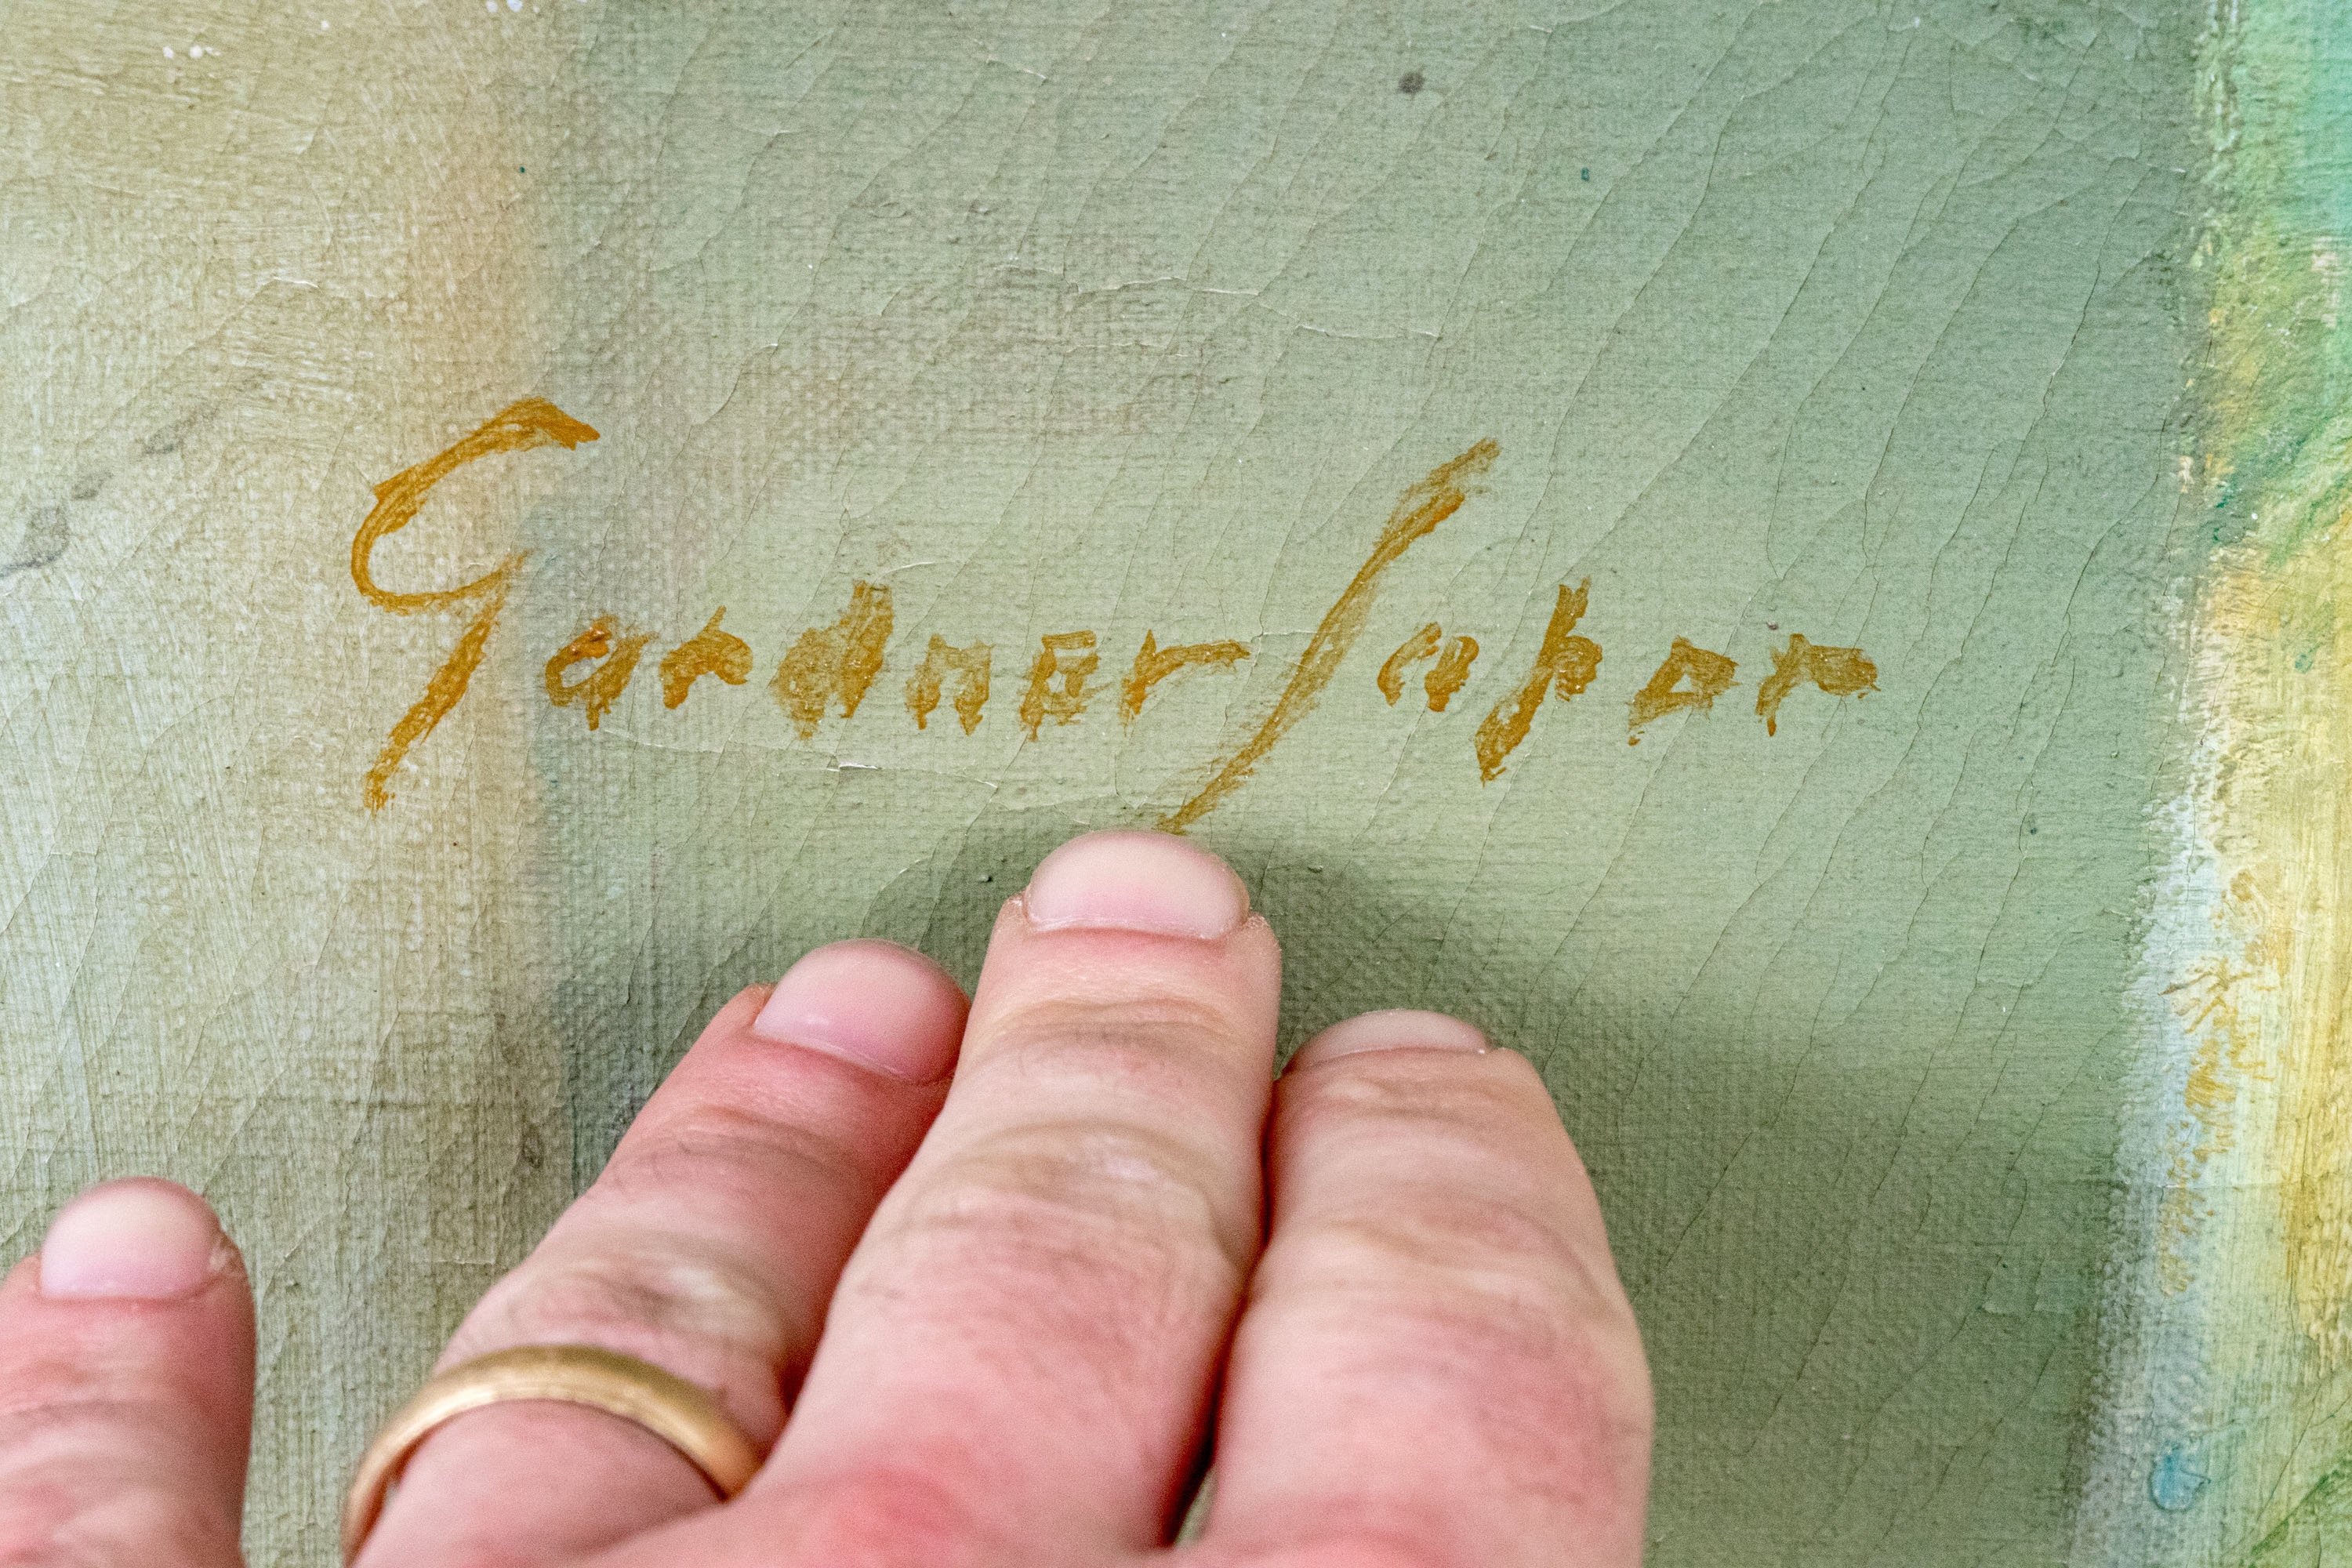 Gardner Soper